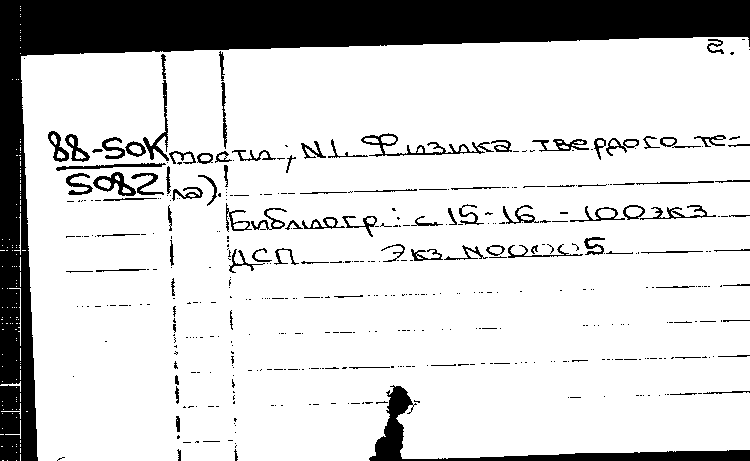 2.
88-50К мости; N1. Физика твердого те-
5082 ла).
Библиогр.: с 15-16. - 100экз
ДСП. Экз. N00005.